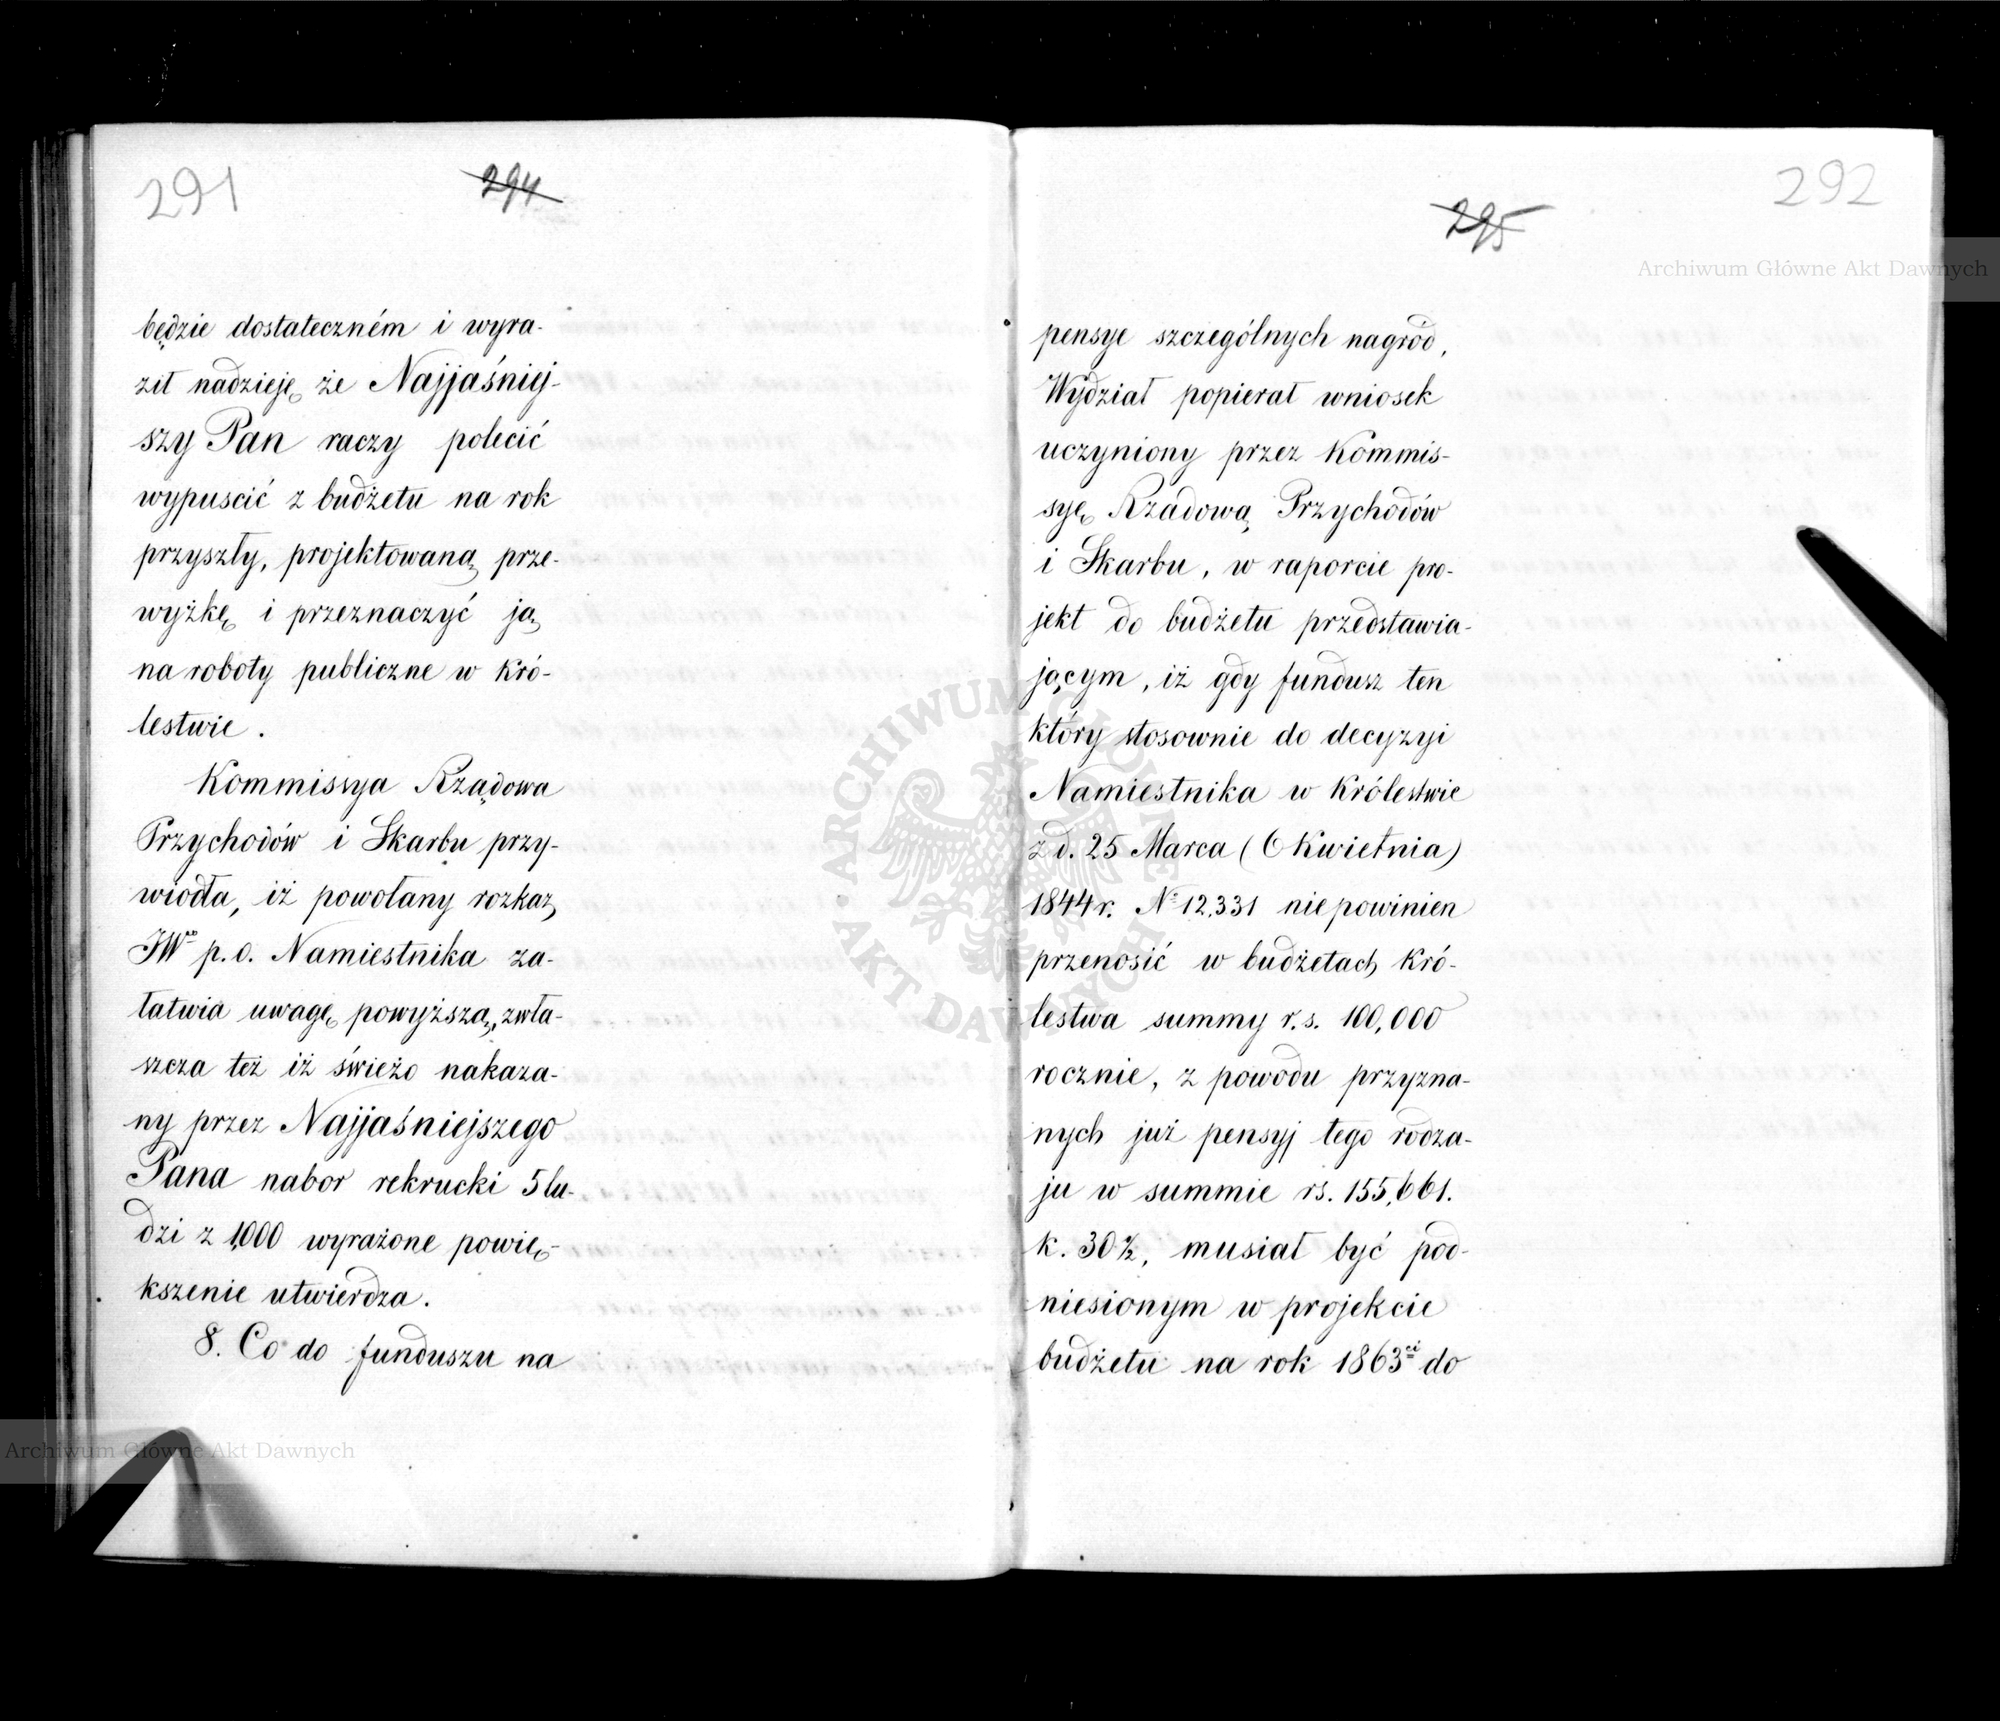 291
294
będzie dostateczném i wyra-
ził nadzieję że Najjaśniej-
szy Pan raczy polecić
wypuscić z budżetu na rok
przyszły, projektowaną prze-
wyżkę i przeznaczyć ją
na roboty publiczne w Kró-
lestwie.
Kommissya Rządowa
Przychodów i Skarbu przy-
wiodła, iż powołany rozkaz
JWº p.o. Namiestnika za-
łatwia uwagę powyższą, zwła-
szcza też iż świeżo nakaza-
ny przez Najjaśniejszego
Pana nabor rekrucki 5 lu-
dzi z 1,000 wyrażone powię-
kszenie utwierdza.
8. Co do funduszu na
292
295
Archiwum Główne Akt Dawnych
pensye szczególnych nagród,
Wydział popierał wniosek
uczyniony przez Kommis-
syę Rządową Przychodów
i Skarbu, w raporcie pro-
jekt do budżetu przedstawia-
jącym, iż gdy fundusz ten
który stosownie do decyzyi
Namiestnika w Królestwie
z d. 25 Marca (6 Kwietnia)
1844 r. Nº 12,331 niepowinien
przenosić w budżetach Kró-
lestwa summy r.s. 100,000
rocznie, z powodu przyzna-
nych już pensyj tego rodza-
ju w summie rs. 155,661.
k. 30½, musiał być pod-
niesionym w projekcie
budżetu na rok 1863ci do
ARCHIWUM GŁÓWNE
AKT DAWNYCH
Archiwum Główne Akt Dawnych